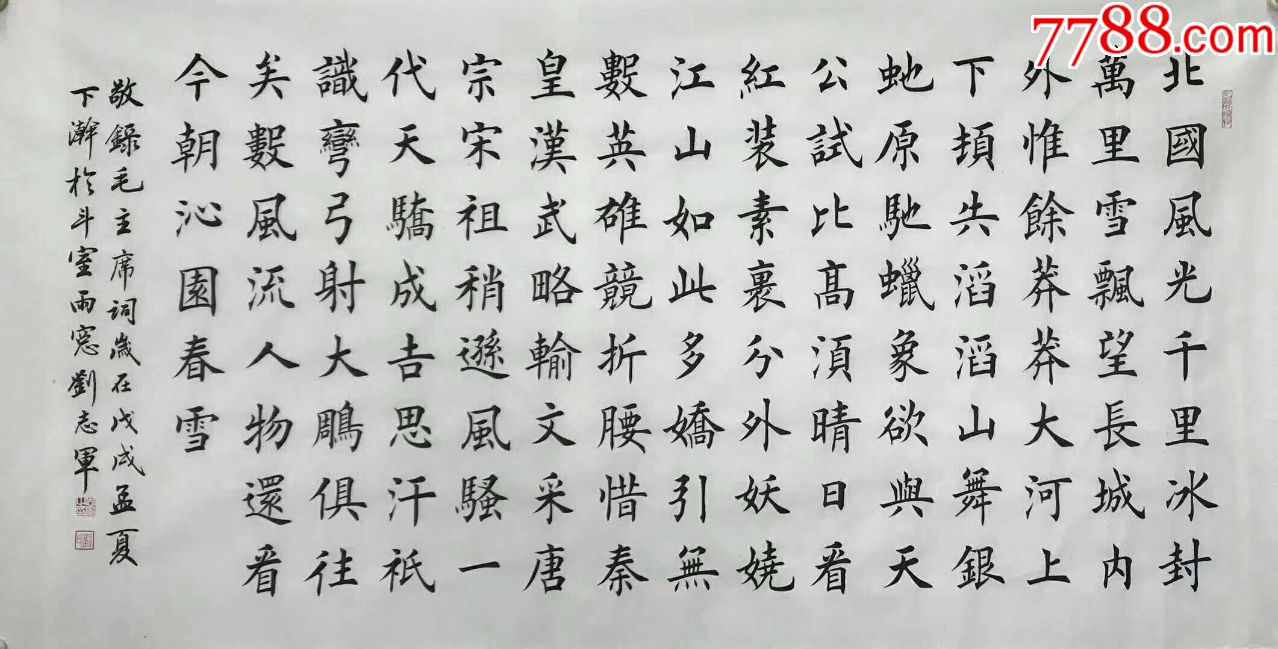 北國風光千里冰封
萬里雪飄望長城內
外惟餘莽莽大河上
下頓失滔滔山舞銀
虵原馳蠟象欲與天
公試比高須晴日看
紅裝素裹分外妖嬈
江山如此多嬌引無
數英雄競折腰惜秦
皇漢武略輸文采唐
宗宋祖稍遜風騷一
代天驕成吉思汗祇
識彎弓射大鵰俱往
矣數風流人物還看
今朝沁園春雪
敬錄毛主席詞歲在戊戌孟夏
下澣於斗室雨窓劉志軍
7788.com